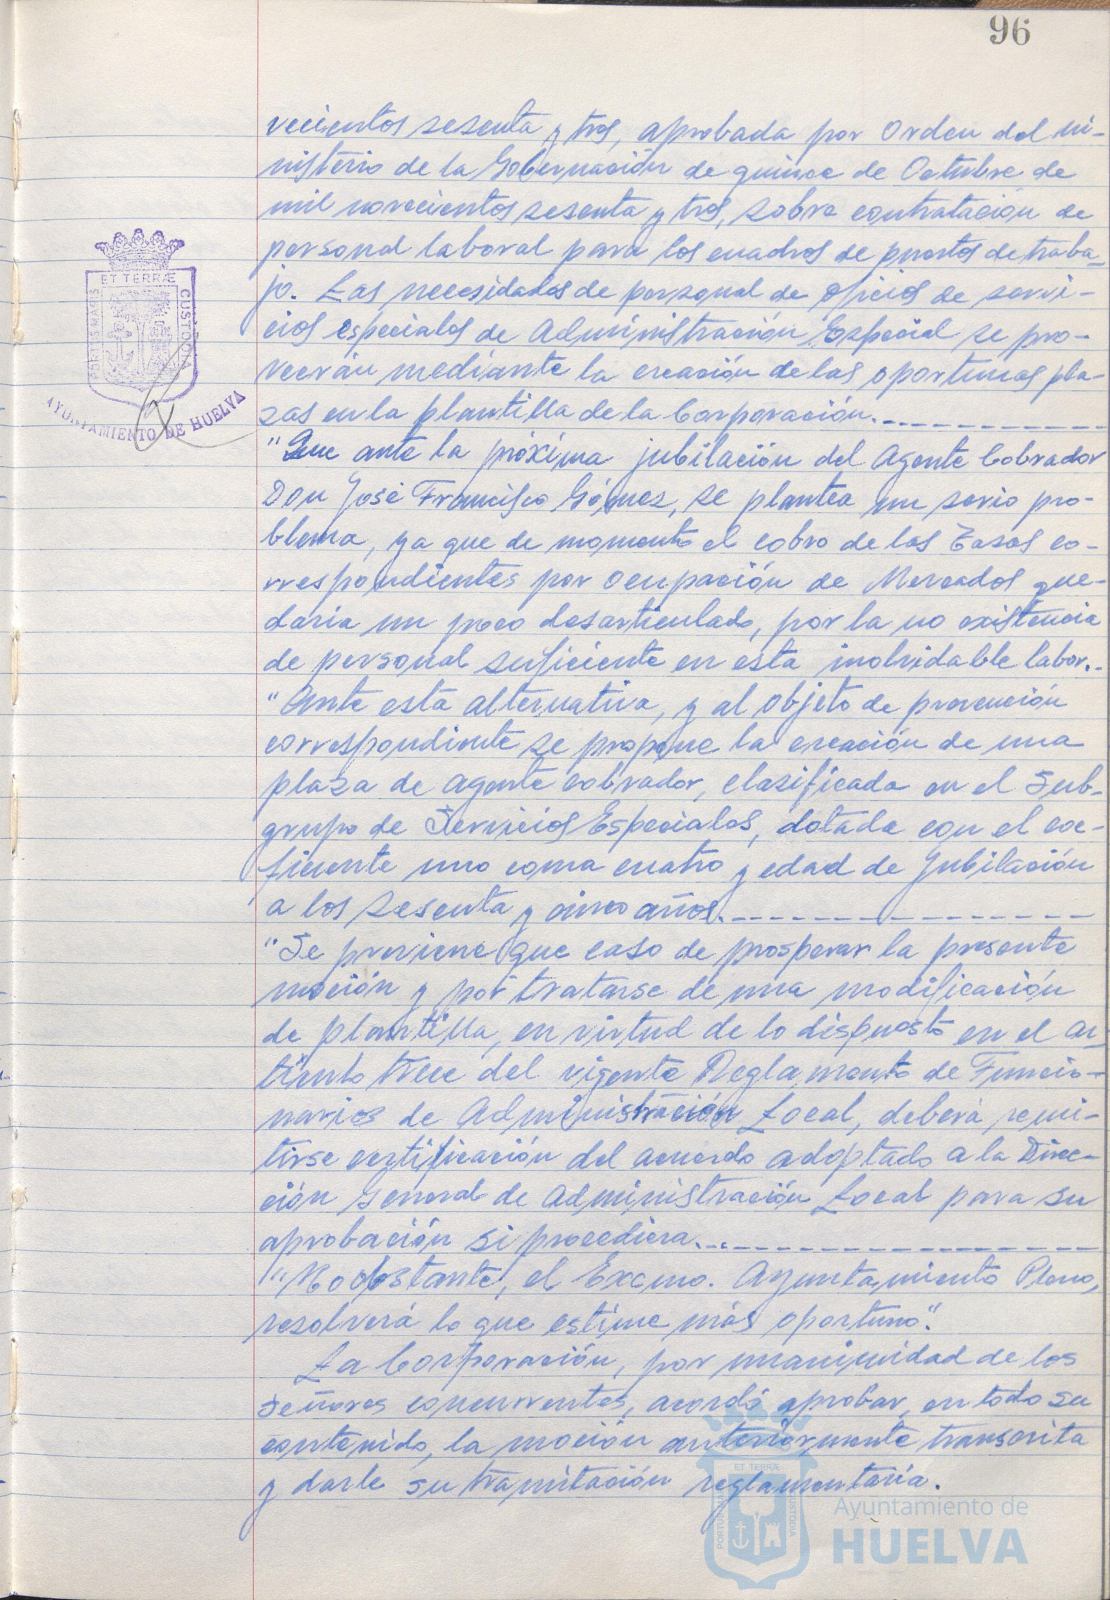 96
vecientos sesenta y tres, aprobada por Orden del Mi-
nisterio de la Gobernación de quince de Octubre de
mil novecientos sesenta y tres, sobre contratación de
personal laboral para los cuadros de puestos de traba-
jo. Las necesidades de personal de oficios de servi-
cios especiales de Administración Especial se pro-
veerán mediante la creación de las oportunas pla-
zas en la plantilla de la Corporación.
"Que ante la próxima jubilación del Agente Cobrador
Don José Francisco Gómez, se plantea un serio pro-
blema, ya que de momento el cobro de las Tasas co-
rrespondientes por ocupación de Mercados que-
daría un poco desarticulado, por la no existencia
de personal suficiente en esta inolvidable labor.
"Ante esta alternativa, y al objeto de prevención
correspondiente se propone la creación de una
plaza de agente cobrador, clasificada en el Sub-
grupo de Servicios Especiales, dotada con el coe-
ficiente uno coma cuatro y edad de Jubilación
a los sesenta y cinco años.
"Se previene que caso de prosperar la presente
moción y por tratarse de una modificación
de plantilla, en virtud de lo dispuesto en el ar-
tículo trece del vigente Reglamento de Funcio-
narios de Administración Local, deberá remi-
tirse certificación del acuerdo adoptado a la Direc-
ción General de Administración Local para su
aprobación si procediera.
"No obstante, el Excmo. Ayuntamiento Pleno,
resolverá lo que estime más oportuno".
La Corporación, por unanimidad de los
Señores concurrentes, acordó aprobar, en todo su
contenido, la moción anteriormente transcrita
y darle su tramitación reglamentaria.
PORTUS MARIS
ET TERRÆ
CUSTODIA
AYUNTAMIENTO DE HUELVA
PORTUS MARIS
ET TERRÆ
CUSTODIA
Ayuntamiento de
HUELVA